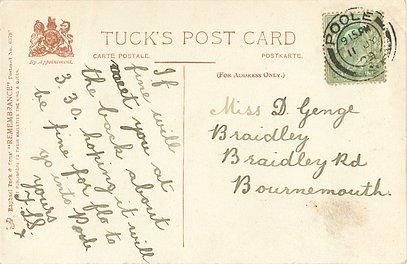 TUCK'S POST CARD
CARTE POSTALE.
POSTKARTE.
(FOR ADDRESS ONLY.)
By Appointment.
Raphael Tuck & Sons' "REMEMBRANCE"
THEIR MAJESTIES THE KING & QUEEN.
POOLE
9 15 PM
If
fine will
meet you at
the back about
3.30. hoping it will
be fine for flo to
go into Poole
yours
Miss D. Genge
Braidley
Braidley Rd
Bournemouth.